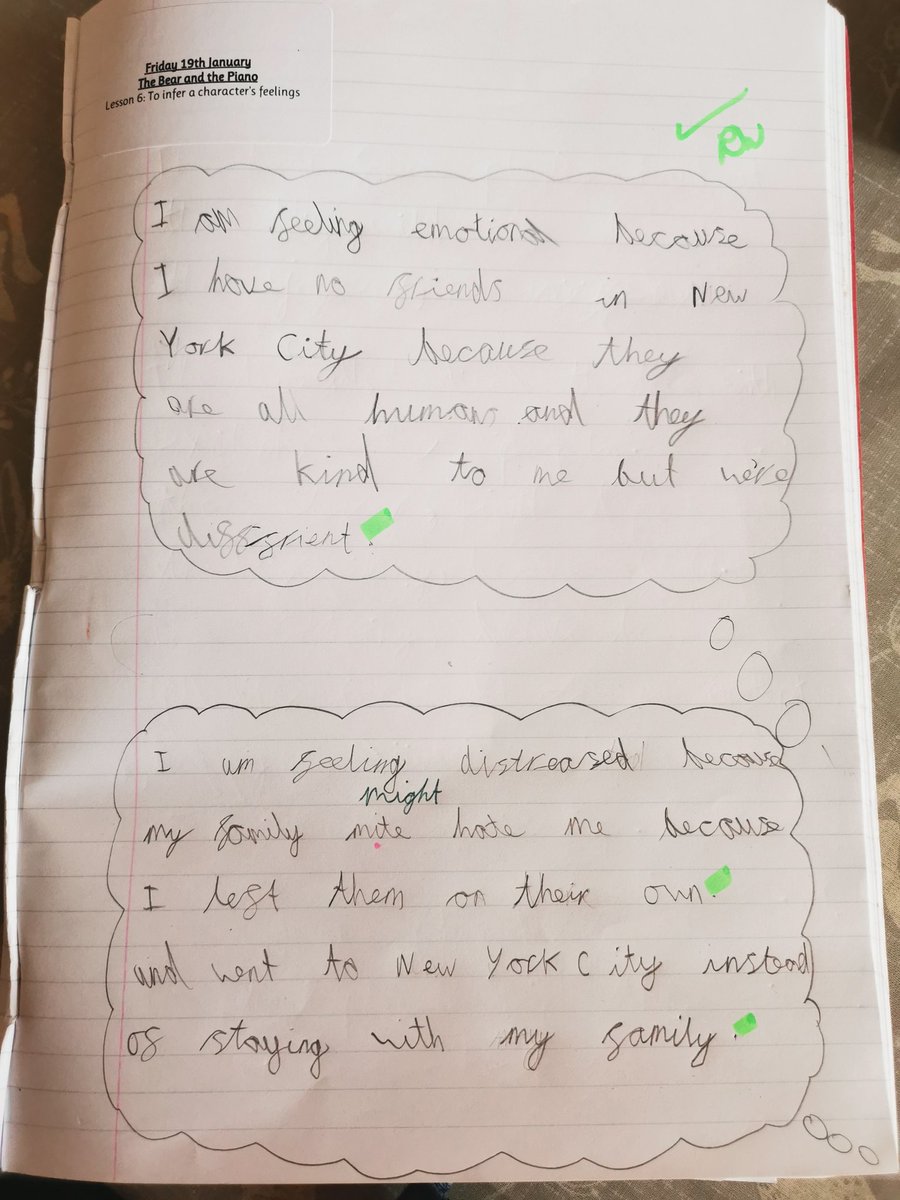 Friday 19th January
The Bear and the Piano
Lesson 6: To infer a character's feelings
I am feeling emotional because
I have no friends in New
York City because they
are all humans and they
are kind to me but we're
diffrient.
I am feeling distreased because
might
my family mite hate me because
I left them on their own.
and went to New York City instead
of staying with my family.